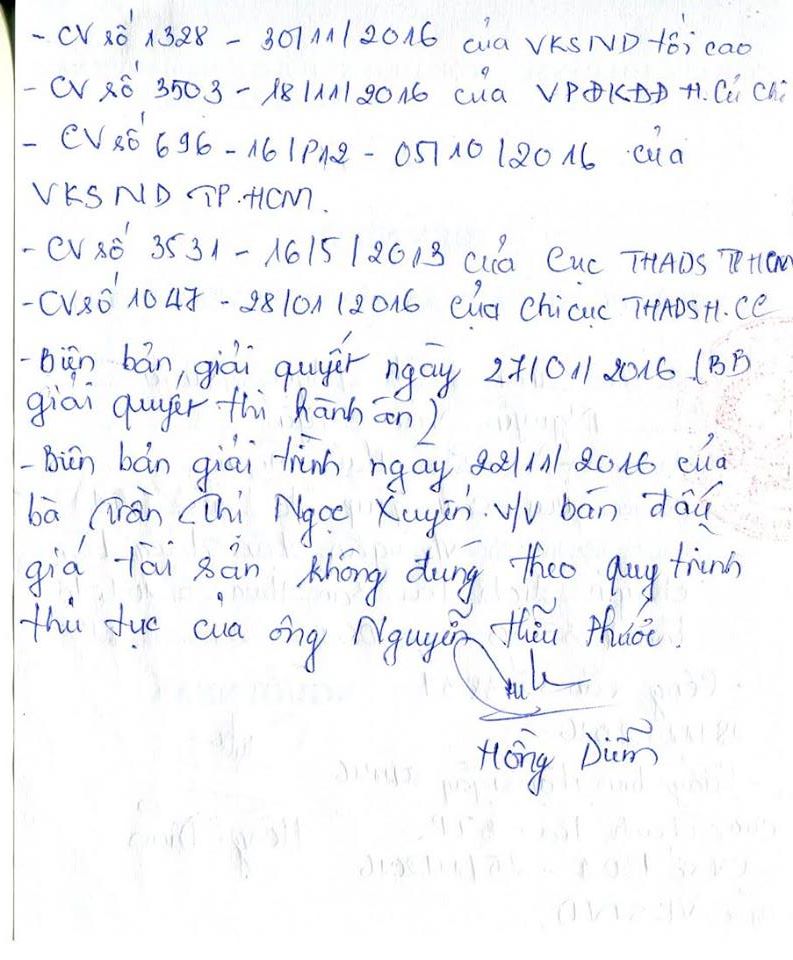 - CV số 1328 - 30/11/2016 của VKSND tối cao
- CV số 3503 - 18/11/2016 của VPĐKĐĐ H. Củ Chi
- CV số 696 - 16/P12 - 05/10/2016 của
VKSND TP.HCM.
- CV số 3531 - 16/5/2013 của Cục THADS TPHCM
- CV số 1047 - 28/01/2016 của Chi cục THADS H. CC
- Biên bản giải quyết ngày 27/01/2016 (BB
giải quyết thi hành án)
- Biên bản giải trình ngày 22/11/2016 của
bà Trần Thị Ngọc Xuyến v/v bán đấu
giá tài sản không đúng theo quy trình
thủ tục của ông Nguyễn Hữu Phước.
Hồng Diễm